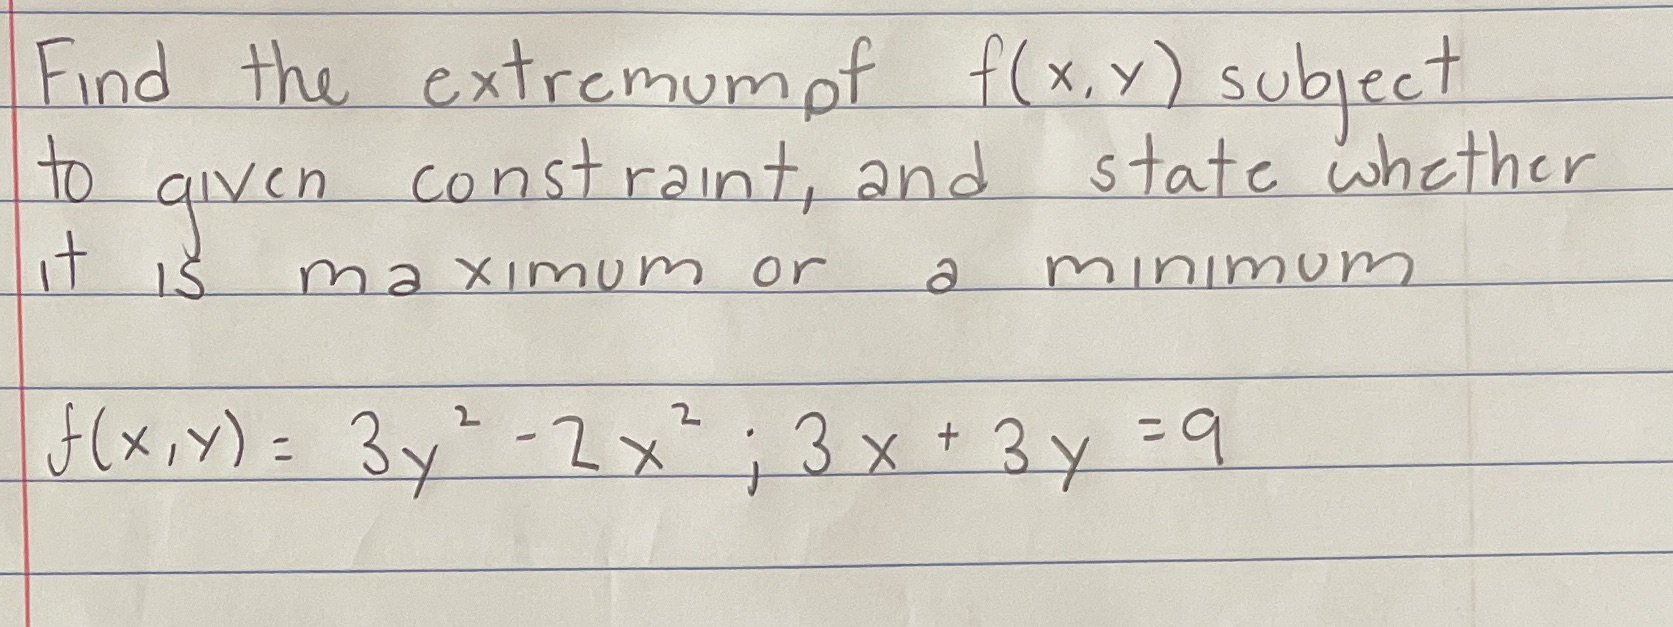 Find the extremum of f(x,y) subject
to given constraint, and state whether
it is maximum or a minimum
f(x,y) = 3y² - 2x² ; 3x + 3y = 9